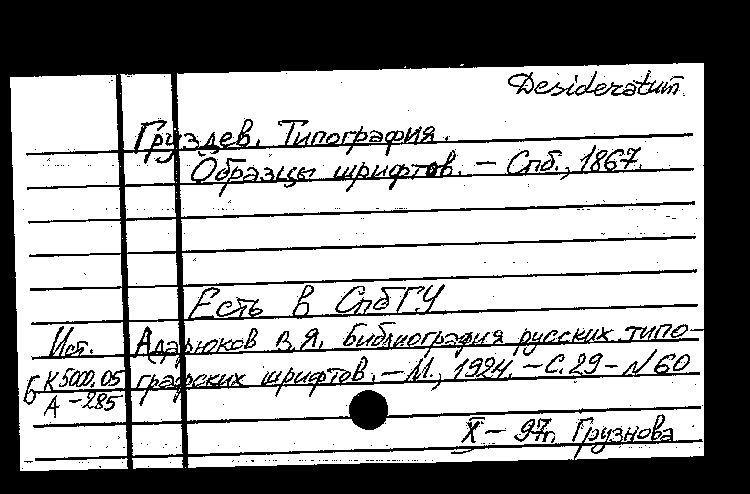 Desideratum
Груздев. Типография.
Образцы шрифтов. – Спб., 1867.
Есть в СпбГУ
Ист. Адарюков В.Я. Библиография русских типо-
Б К5000.05 графских шрифтов. – М., 1924. – С. 29 – N 60
А – 285
X – 97г. Грузнова